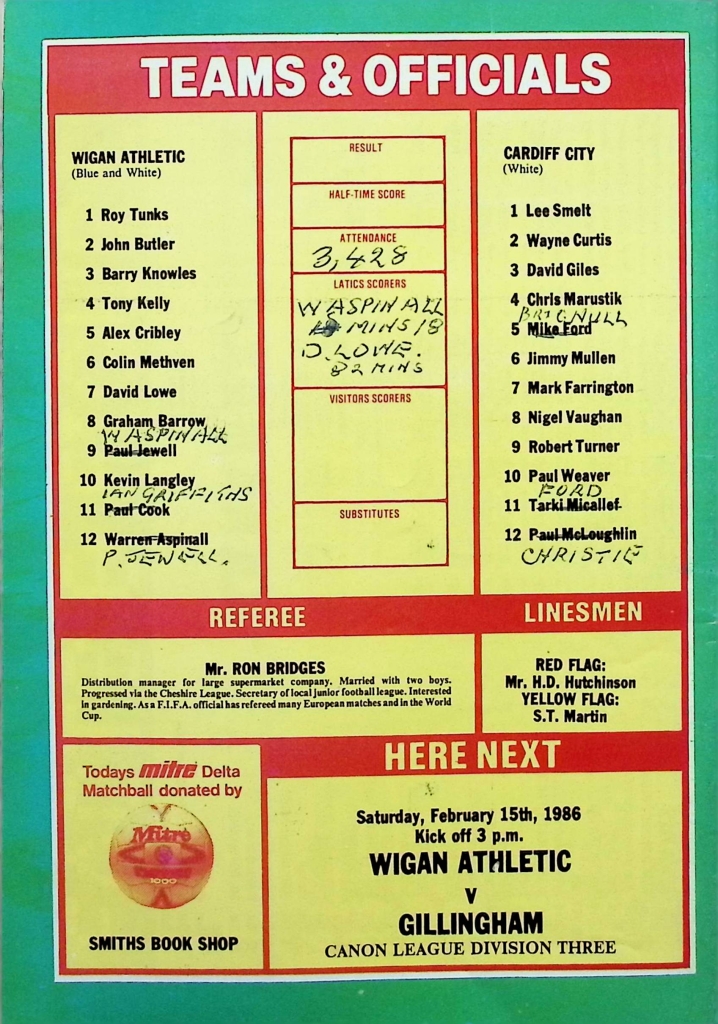 TEAMS & OFFICIALS
WIGAN ATHLETIC
(Blue and White)
1 Roy Tunks
2 John Butler
3 Barry Knowles
4 Tony Kelly
5 Alex Cribley
6 Colin Methven
7 David Lowe
8 Graham Barrow
WASPINALL
9 Paul Jewell
10 Kevin Langley
IAN GRIFFITHS
11 Paul Cook
12 Warren Aspinall
P. JEWELL.
RESULT
HALF-TIME SCORE
ATTENDANCE
3,428
LATICS SCORERS
WASPINALL
MINS 18
D. LOWE.
82 MINS
VISITORS SCORERS
SUBSTITUTES
CARDIFF CITY
(White)
1 Lee Smelt
2 Wayne Curtis
3 David Giles
4 Chris Marustik
BRIGNULL
5 Mike Ford
6 Jimmy Mullen
7 Mark Farrington
8 Nigel Vaughan
9 Robert Turner
10 Paul Weaver
FORD
11 Tarki Micallef
12 Paul McLoughlin
CHRISTIE
REFEREE
Mr. RON BRIDGES
Distribution manager for large supermarket company. Married with two boys.
Progressed via the Cheshire League. Secretary of local junior football league. Interested
in gardening. As a F.I.F.A. official has refereed many European matches and in the World
Cup.
LINESMEN
RED FLAG:
Mr. H.D. Hutchinson
YELLOW FLAG:
S.T. Martin
Todays mitre Delta
Matchball donated by
Mitre
1000
SMITHS BOOK SHOP
HERE NEXT
Saturday, February 15th, 1986
Kick off 3 p.m.
WIGAN ATHLETIC
V
GILLINGHAM
CANON LEAGUE DIVISION THREE